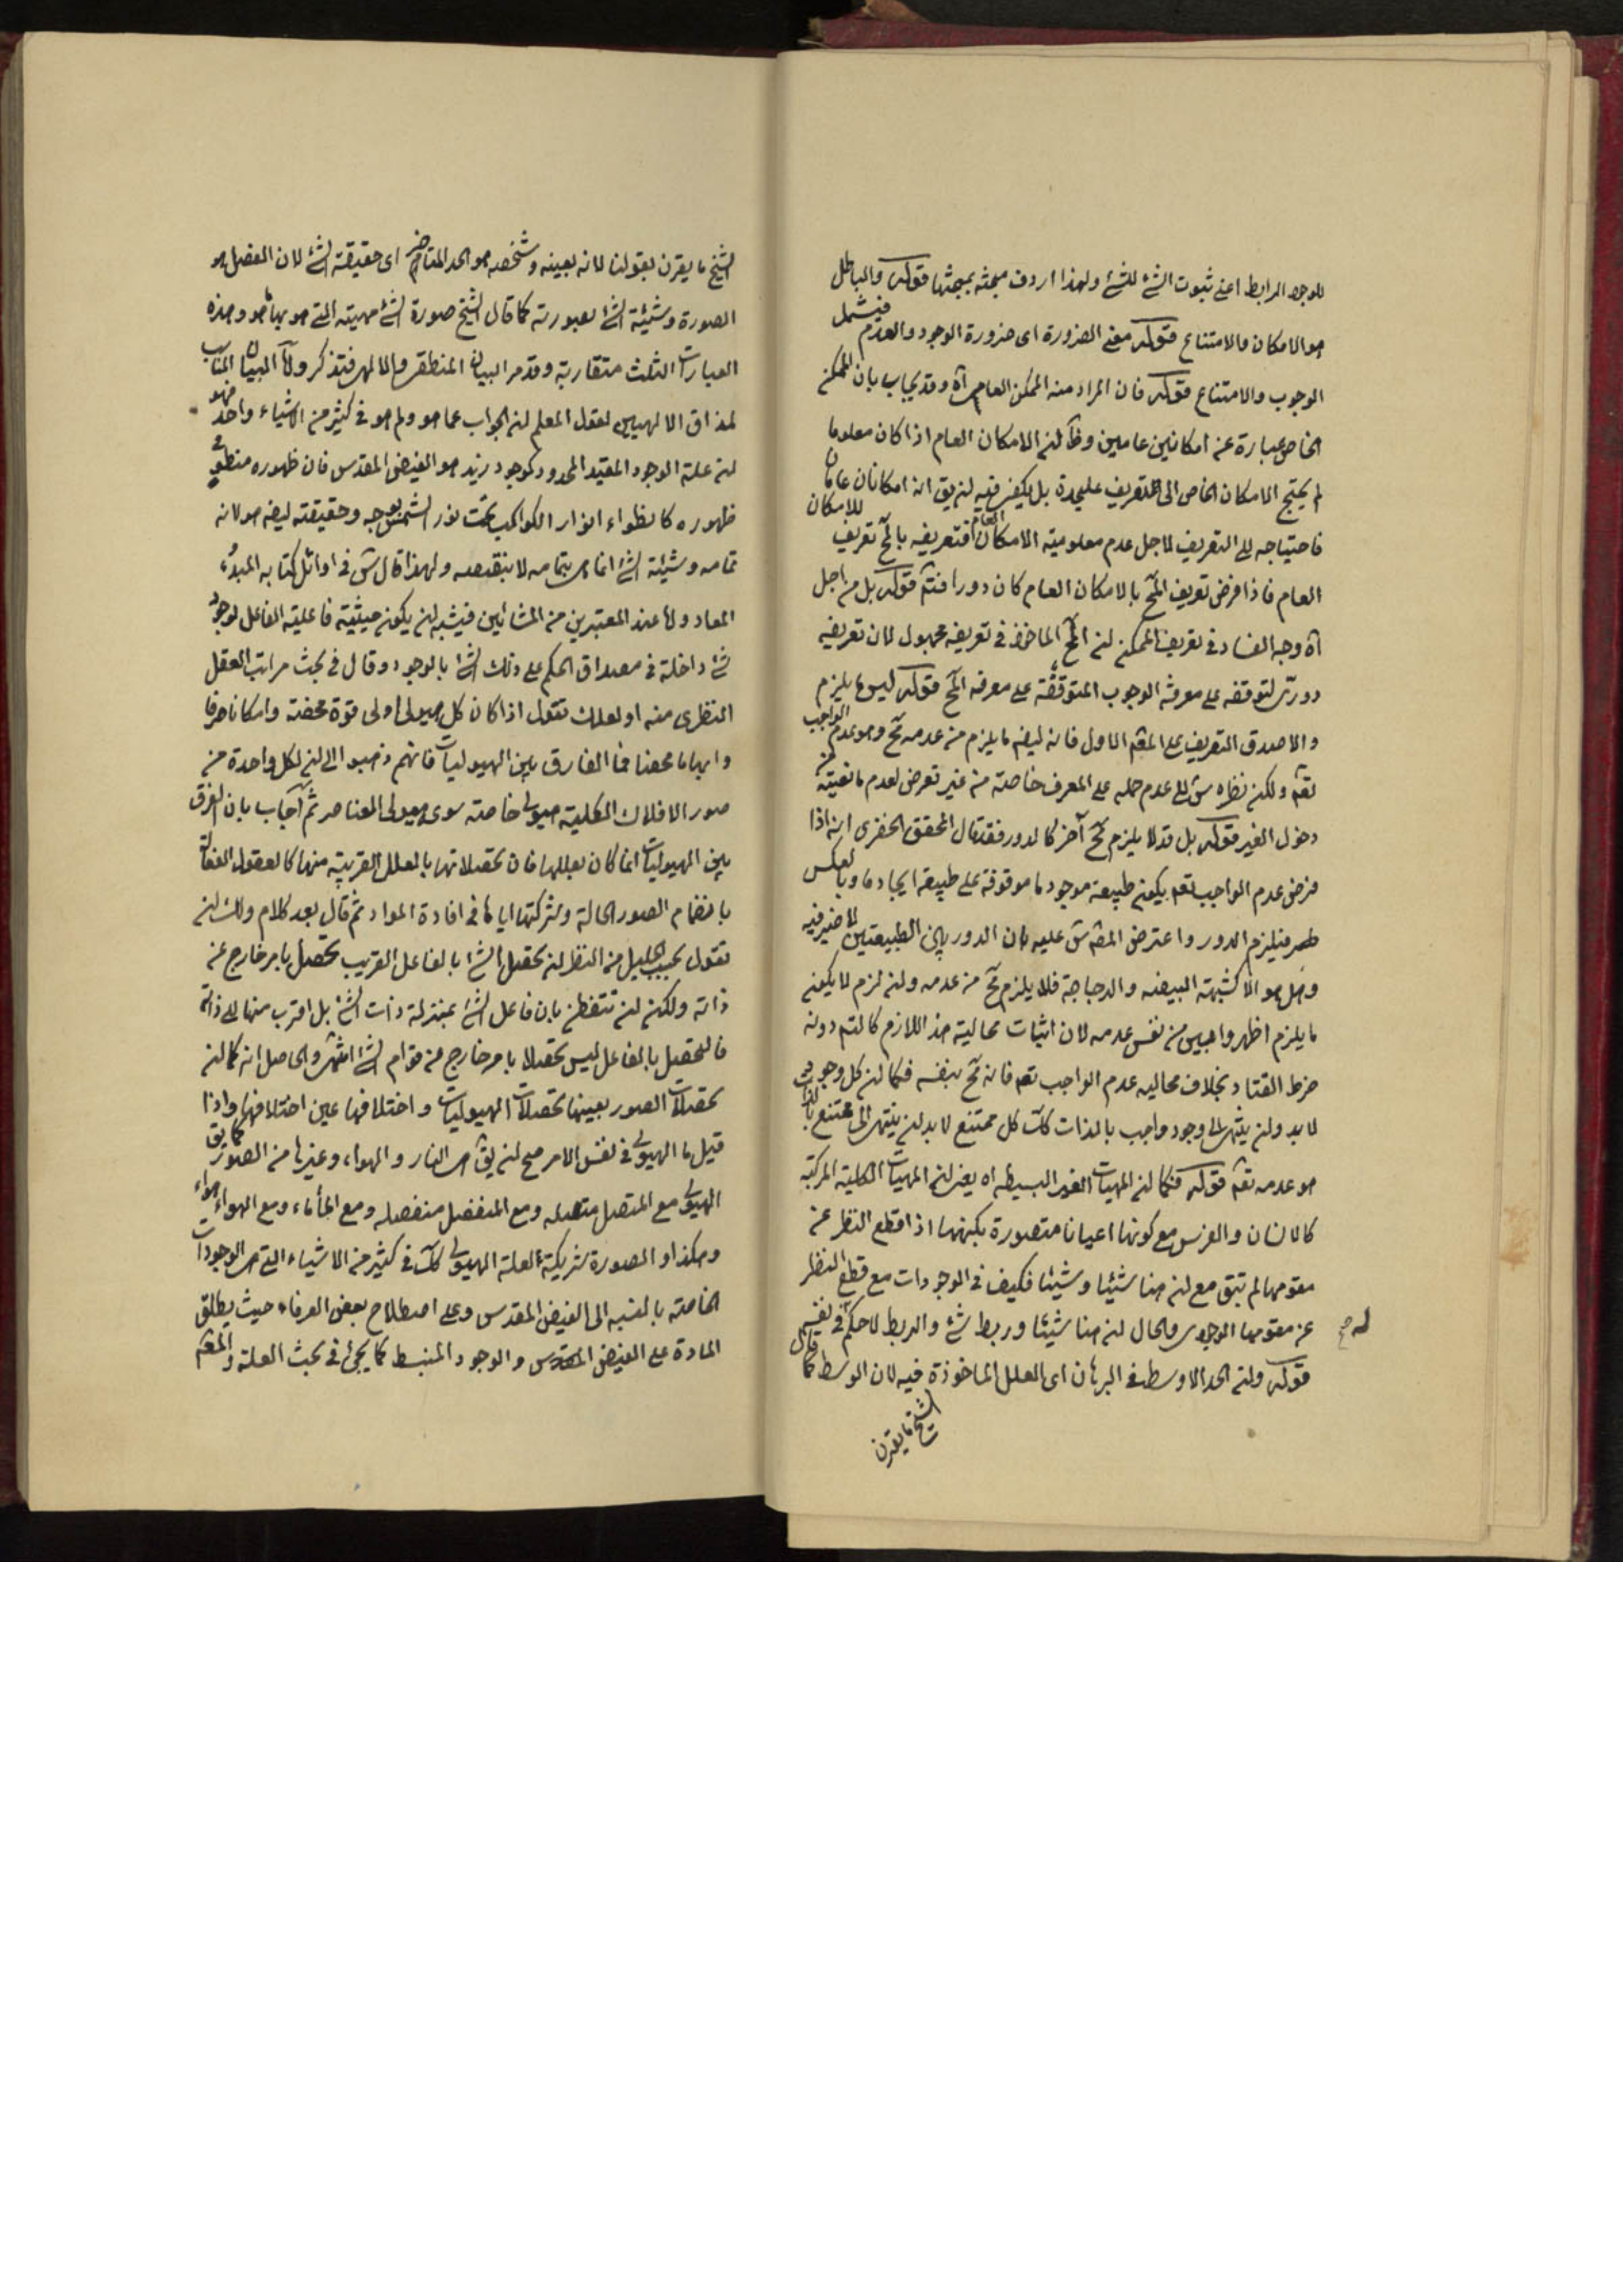 للوجود الرابط اعنى ثبوت الشئ للشئ ولهذا اردف مبحثه بمبحثها قوله والباطل
هو الامكان والامتناع قوله معنى الضرورة اى ضرورة الوجود والعدم فيشمل
الوجوب والامتناع قوله فان المراد منه الممكن العام آه وقد يجاب بان الممكن
الخاص عبارة عن امكانين عامين وظ ان الامكان العام اذا كان معلوما
لم يحتج الامكان الخاص الى التعريف عليحدة بل يكفى فيه ان يق انه امكانان عامان
فاحتياجه الى التعريف لاجل عدم معلومية الامكان العام فتعريفه بالمح تعريف للامكان
العام فاذا فرض تعريف المح بالامكان العام كان دورا فتم قوله بل من اجل
آه وجه الفساد فى تعريف الممكن ان المح الماخوذ فى تعريفه مجهول لان تعريفه
دورى لتوقفه على معرفة الوجوب المتوقفة على معرفة المح قوله ليس ما يلزم
والا صدق التعريف على المعلول الاول فانه ايضا يلزم من عدمه مح وهو عدم الواجب
تعم ولكن نظره ش الى عدم حمله على المعرف خاصة من غير تعرض لعدم مانعيته من
دخول الغير قوله بل قد لا يلزم مح آخر كالدور فقد قال المحقق الخفرى انه اذا
فرض عدم الواجب تعم يكون طبيعة موجود ما موقوفة على طبيعة ايجاد ما وبالعكس
فيلزم الدور واعترض المصم ش عليه بان الدور بين الطبيعتين لا ضير فيه
وهل هو الا كشبهة البيضه والدجاجة فلا يلزم مح من عدمه ولئن لزم لا يكون
ما يلزم اظهر وابين من نفس عدمه لان اثبات محالية هذا اللازم كالتم دونه
خرط القتاد بخلاف محاليه عدم الواجب تعم فانه مح بنفسه فكما ان كل وجود
لا بد وان ينتهى الى وجود واجب بالذات كك كل ممتنع لا بد ان ينتهى الى ممتنع بالذات
هو عدمه تعم قوله فكما ان المهيات الغير البسيطه اه يعنى ان المهيات الكلية المركبة
كالانسان والفرس مع كونها اعيانا متصورة بكنهها اذا قطع النظر عن
مقومها لم تبق مع ان هنا شيئا وشيئا فكيف فى الوجودات مع قطع النظر
عن مقومها الوجودى والحال ان هنا شيئا وربط شئ والربط لا حكم له فى نفسه
قوله وان الحد الاوسط فى البرهان اى العلل الماخوذة فيه لان الوسط كما قال
الشيخ ما يقرن
الشيخ ما يقرن بقولنا لانه بعينه وشخصه هو الحد المتاخر اى حقيقة الشئ لان الفصل هو
الصورة وشيئية الشئ بصورته كما قال الشيخ صورة الشئ مهيته التى هو بها هو وهذه
العبارات الثلث متقاربة وقد مر البيان المنطقى والالهى فتذكر والآ البيان المناسب
لمذاق الالهيين لقول المعلم ان الجواب عما هو ولم هو فى كثير من الاشياء واحد فهو
ان علة الوجود المقيد المحدود كوجود زيد هو الفيض المقدس فان ظهوره منطو فى
ظهوره كانطواء انوار الكواكب تحت نور الشمس بوجه وحقيقته ايضا هو لانه
تمامه وشيئية الشئ انما هى بتمامه لا بنقصه ولهذا قال ش فى اوائل كتابه المبدء
المعاد واما عند المعتبرين من المشائين فيشبه ان يكون حيثية فاعلية الفاعل لوجود
شئ داخلة فى مصداق الحكم على ذلك الشئ بالوجود وقال فى بحث مراتب العقل
النظرى منه او لعلك تقول اذا كان كل هيولى اولى قوة محضة وامكانا صرفا
وابهاما محضا فما الفارق بين الهيوليات فانهم ذهبوا الى ان لكل واحدة من
صور الافلاك الكلية هيولى خاصة سوى هيولى العناصر ثم اجاب بان الفرق
بين الهيوليات انما كان بعللها فان تحصلاتها بالعلل القريبة منها كالعقول الفعالة
بانضمام الصور الحالة وشركتها اياها فى افادة المواد ثم قال بعد كلام ولك ان
تقول بحسب الجليل من النظر ان تحصل الشئ بالفاعل القريب تحصل بامر خارج عن
ذاته ولكن ان تتفطن بان فاعل الشئ بمنزلة ذات الشئ بل اقرب منها الى ذاته
فالتحصل بالفاعل ليس تحصلا بامر خارج من قوام الشئ انتهى والحاصل انه كما ان
تحصلات الصور بعينها تحصلات الهيوليات واختلافها عين اختلافها واذا
قيل ما الهيولى فى نفس الامر صح ان يق هى النار والهواء وغيرها من الصور كما يق
الهيولى مع المتصل متصله ومع المنفصل منفصله ومع الماء ماء ومع الهواء هواء
وهكذا والصورة شريكة العلة للهيولى كك فى كثير من الاشياء التى هى الوجودات
الخاصة بالنسبه الى الفيض المقدس وعلى اصطلاح بعض العرفاء حيث يطلق
المادة على الفيض المقدس والوجود المنبسط كما يجئ فى بحث العلة والمعلم